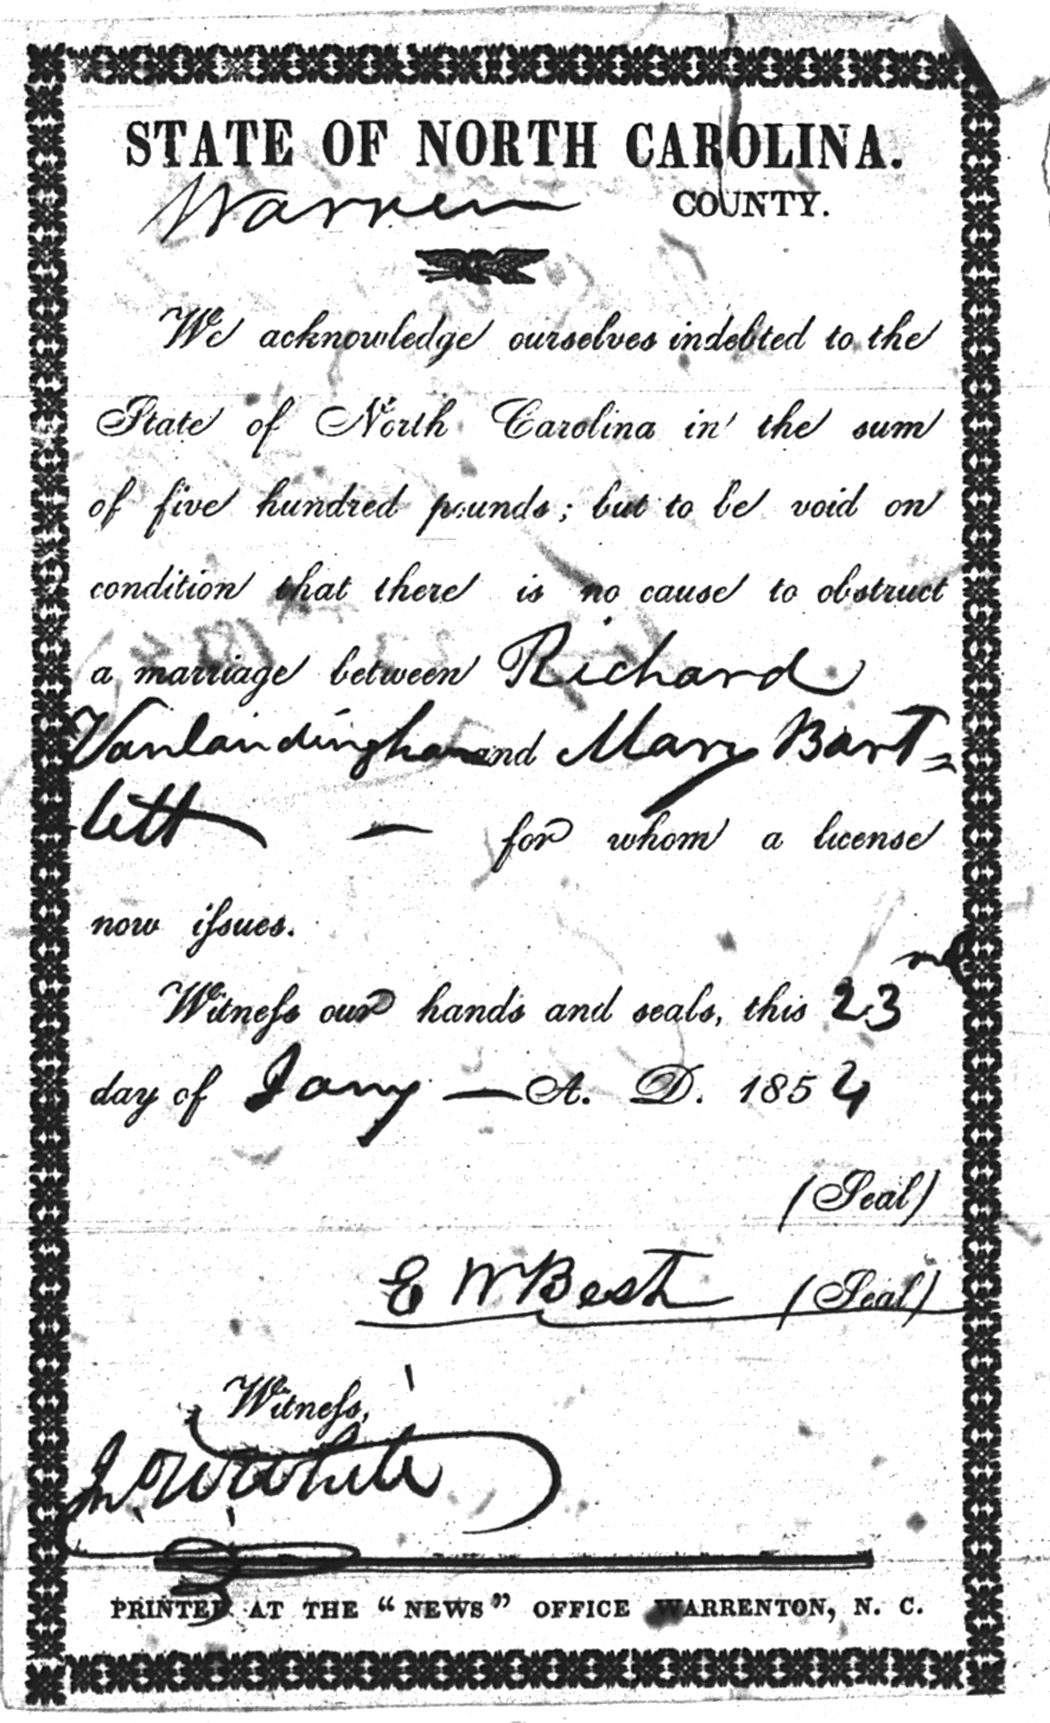 STATE OF NORTH CAROLINA.
Warren COUNTY.
We acknowledge ourselves indebted to the
State of North Carolina in the sum
of five hundred pounds; but to be void on
condition that there is no cause to obstruct
a marriage between Richard
Vanlandingham and Mary Bart=
lett — for whom a license
now issues.
Witness our hands and seals, this 23rd
day of Jany — A. D. 1854
(Seal)
E W Best (Seal)
Witness,
Jno W White
PRINTED AT THE "NEWS" OFFICE WARRENTON, N. C.